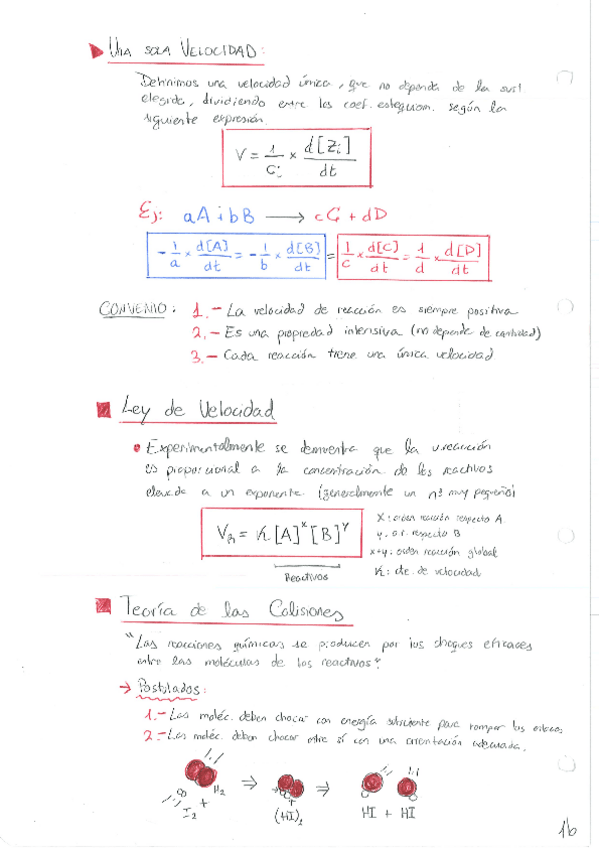 ▶ UNA SOLA VELOCIDAD:
Definimos una velocidad única, que no dependa de la sust
elegida, dividiendo entre los coef. estequiom. según la
siguiente expresión.
V = 1/Ci × d[Zi]/dt
Ej: aA + bB → cC + dD
-1/a × d[A]/dt = -1/b × d[B]/dt = 1/c × d[C]/dt = 1/d × d[D]/dt
CONVENIO: 1.- La velocidad de reacción es siempre positiva
2.- Es una propiedad intensiva (no depende de cantidad)
3.- Cada reacción tiene una única velocidad
Ley de Velocidad
• Experimentalmente se demuestra que la v.reacción
es proporcional a la concentración de los reactivos
elevada a un exponente (generalmente un nº muy pequeño)
VR = K [A]^x [B]^y
Reactivos
x: orden reacción respecto A.
y: o.r. respecto B
x+y: orden reacción global
K: cte. de velocidad
Teoría de las Colisiones
"Las reacciones químicas se producen por los choques eficaces
entre las moléculas de los reactivos"
→ Postulados:
1.- Las moléc. deben chocar con energía suficiente para romper los enlaces
2.- Las moléc. deben chocar entre sí con una orientación adecuada.
I2 + H2 ⇒ (HI)2 ⇒ HI + HI
16